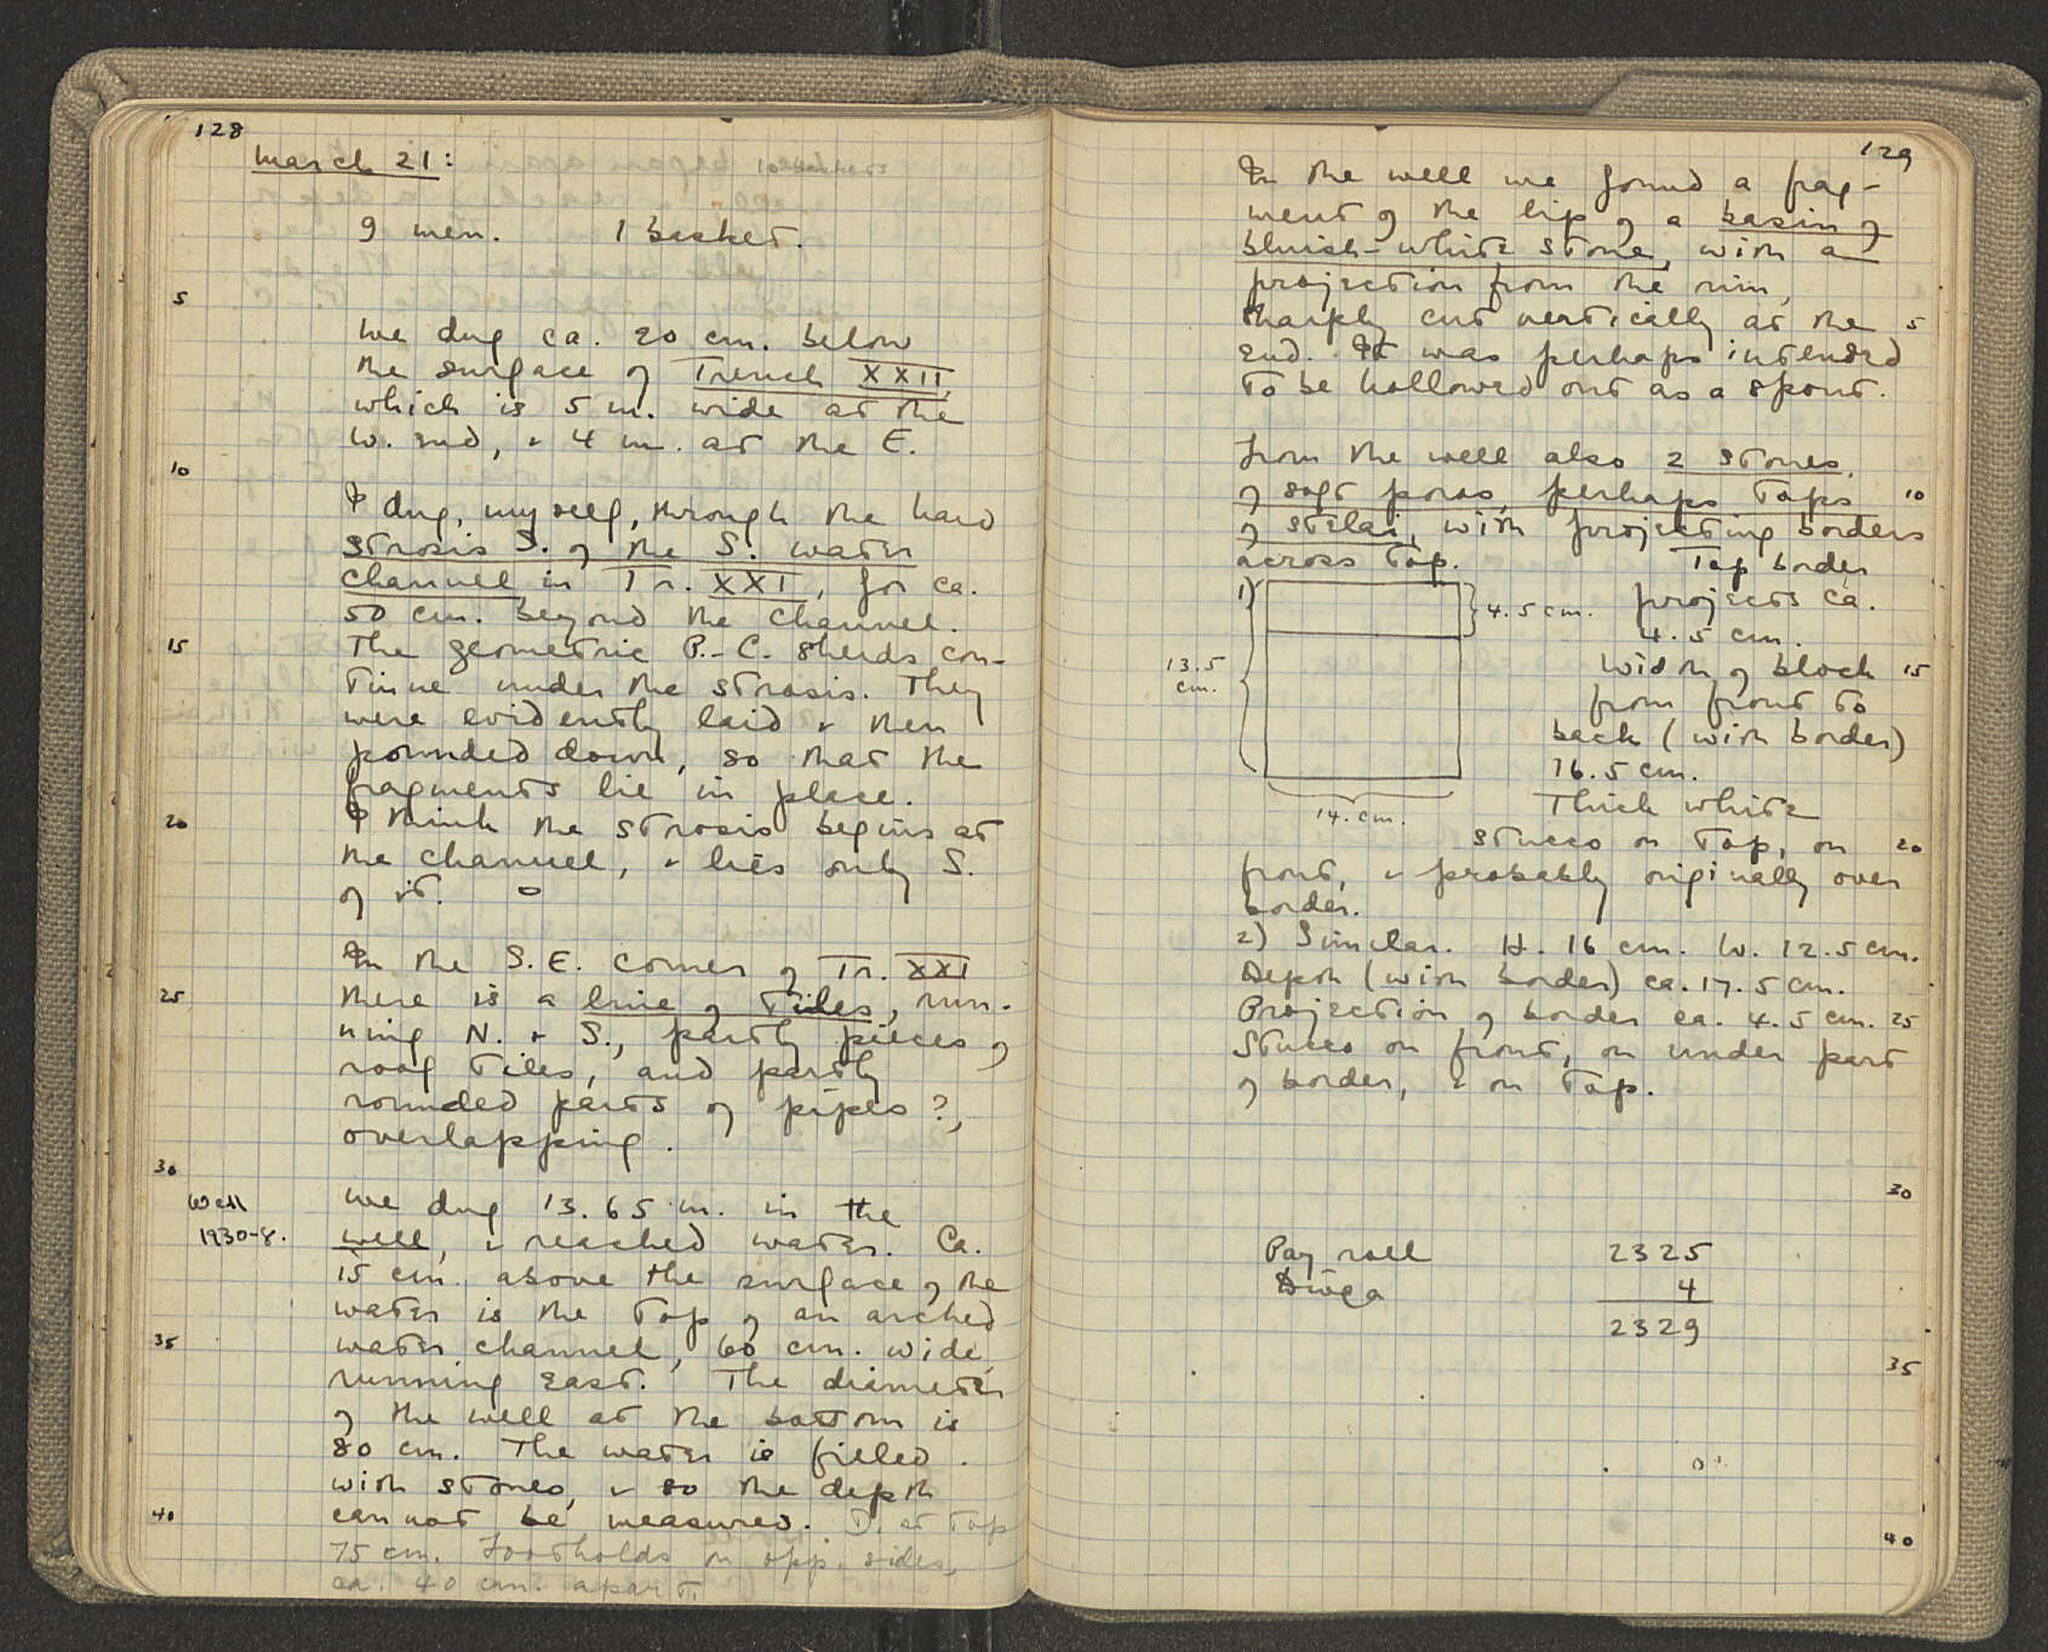 128
March 21:
9 men. 1 basket.
5
We dug ca. 20 cm. below
the surface of Trench XXII,
which is 5 m. wide at the
W. end, & 4 m. at the E.
10
I dug, myself, through the hard
strosis S. of the S. water
channel in Tr. XXI, for ca.
50 cm. beyond the channel.
15
The geometric P.-C. sherds con-
tinue under the strosis. They
were evidently laid & then
pounded down, so that the
fragments lie in place.
20
I think the strosis begins at
the channel, & lies only S.
of it.
In the S.E. corner of Tr. XXI
25
there is a line of tiles, run-
ning N. & S., partly pieces of
roof tiles, and partly
rounded parts of pipes?,
overlapping.
30
Well
1930-8.
We dug 13.65 m. in the
well, & reached water. Ca.
15 cm. above the surface of the
water is the top of an arched
35
water channel, 60 cm. wide,
running East. The diameter
of the well at the bottom is
80 cm. The water is filled
with stones, & so the depth
40
cannot be measured. D. at top
75 cm. Footholds on opp. sides,
ca. 40 cm. apart.
129
In the well we found a frag-
ment of the lip of a basin of
bluish-white stone, with a
projection from the rim,
sharply cut vertically at the 5
end. It was perhaps intended
to be hollowed out as a spout.
From the well also 2 stones,
of soft poros, perhaps tops 10
of stelai, with projecting borders
across top. Top border
1) 4.5 cm. projects ca.
4.5 cm.
13.5
cm.
Width of block 15
from front to
back (with border)
16.5 cm.
14. cm.
Thick white
stucco on top, on 20
front, & probably originally over
border.
2) Similar. H. 16 cm. W. 12.5 cm.
Depth (with border) ca. 17.5 cm.
Projection of border ca. 4.5 cm. 25
Stucco on front, on under part
of border, & on top.
30
Pay roll 2325
4
2329
35
40